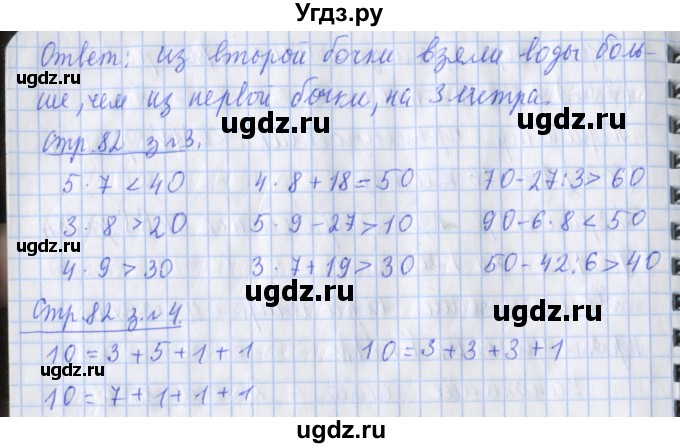 Угдз.ру
Ответ: из второй бочки взяли воды боль-
ше, чем из первой бочки, на 3 литра.
Стр. 82 з. №3.
5 · 7 < 40 4 · 8 + 18 = 50 70 - 27 : 3 > 60
3 · 8 > 20 5 · 9 - 27 > 10 90 - 6 · 8 < 50
4 · 9 > 30 3 · 7 + 19 > 30 50 - 42 : 6 > 40
Стр. 82 з. №4.
10 = 3 + 5 + 1 + 1 10 = 3 + 3 + 3 + 1
10 = 7 + 1 + 1 + 1
ugdz.ru
ugdz.ru
ugdz.ru
ugdz.ru
ugdz.ru
ugdz.ru
ugdz.ru
ugdz.ru
ugdz.ru
ugdz.ru
ugdz.ru